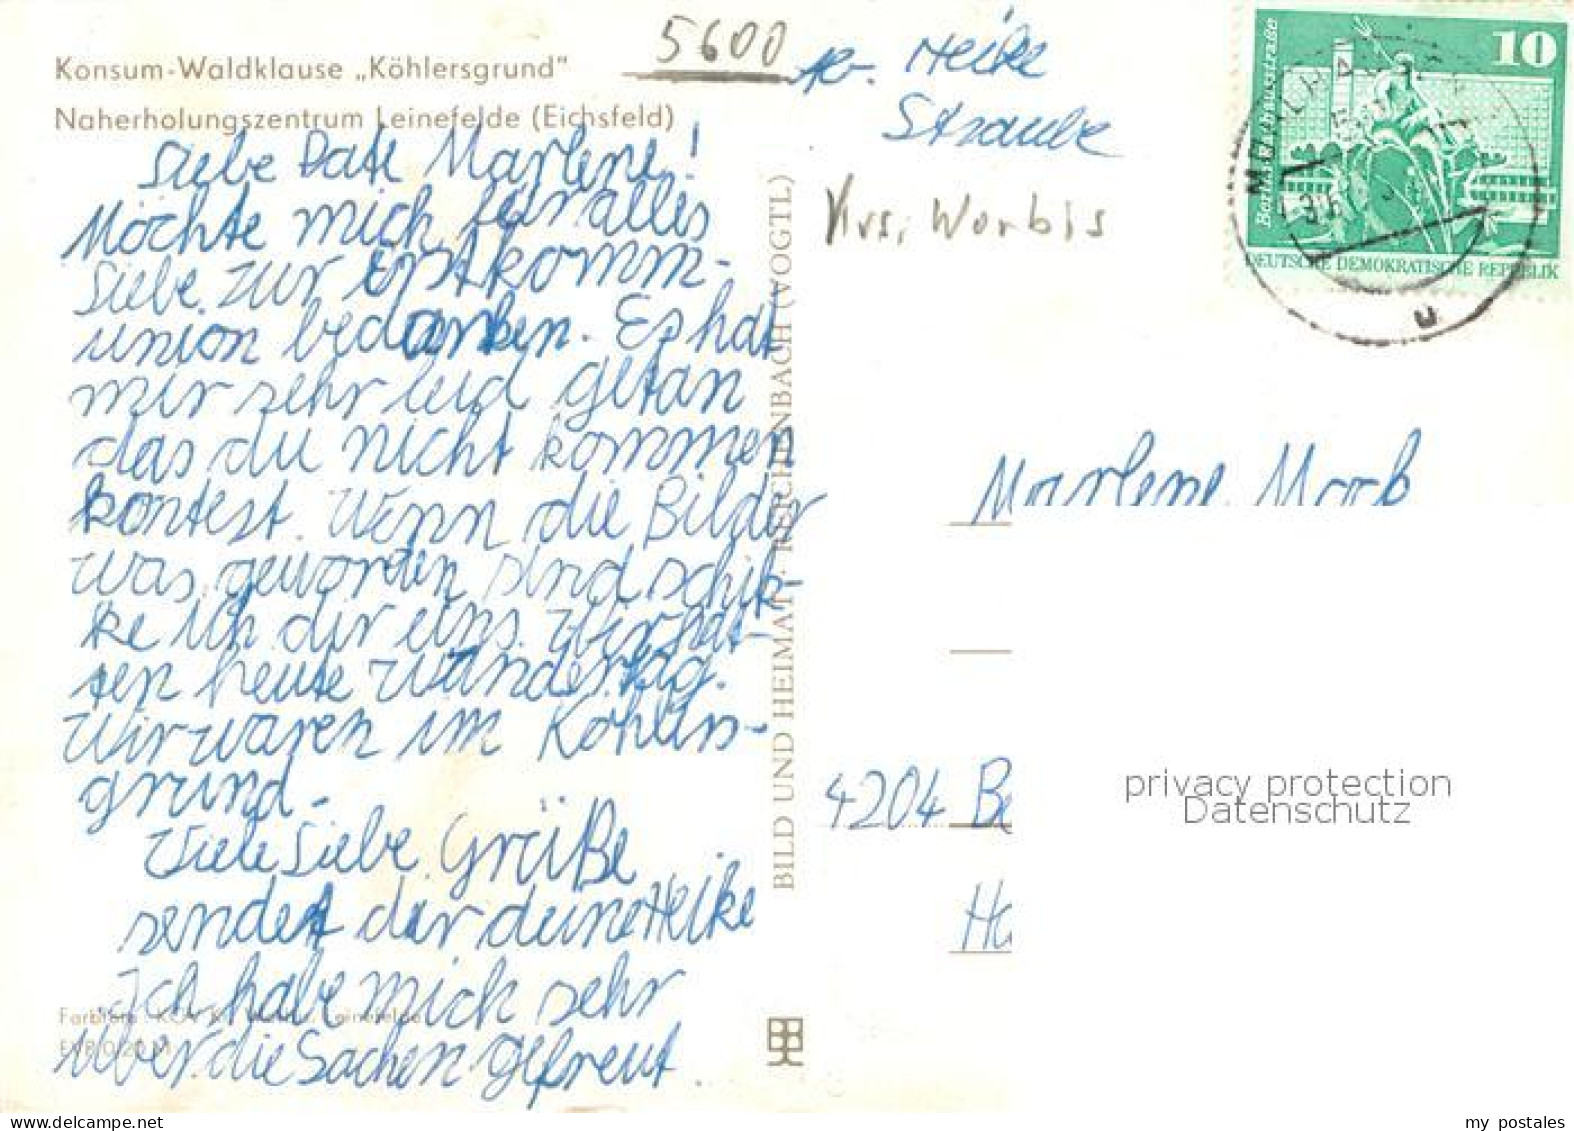 Konsum-Waldklause „Köhlersgrund"
Naherholungszentrum Leinefelde (Eichsfeld)
Liebe Pate Marlene!
Möchte mich für alles
Liebe zur Erstkomm-
union bedanken. Es hat
mir sehr leid getan
das du nicht kommen
kontest. Wenn die Bilder
was geworden sind schik-
ke ich dir eins. Wir hat-
ten heute Wandertag.
Wir waren im Köhlers-
grund.
Viele Liebe Grüße
sendet dir deine Heike
Ich habe mich sehr
über die Sachen gefreut.
Leinefelde
EVP 0,20 M
BILD UND HEIMAT · REICHENBACH (VOGTL)
5600
Heike
Straube
Krs. Worbis
10
Rathausstraße
DEUTSCHE DEMOKRATISCHE REPUBLIK
u
Marlene
4204 Be
Ha
privacy protection
Datenschutz
my postales